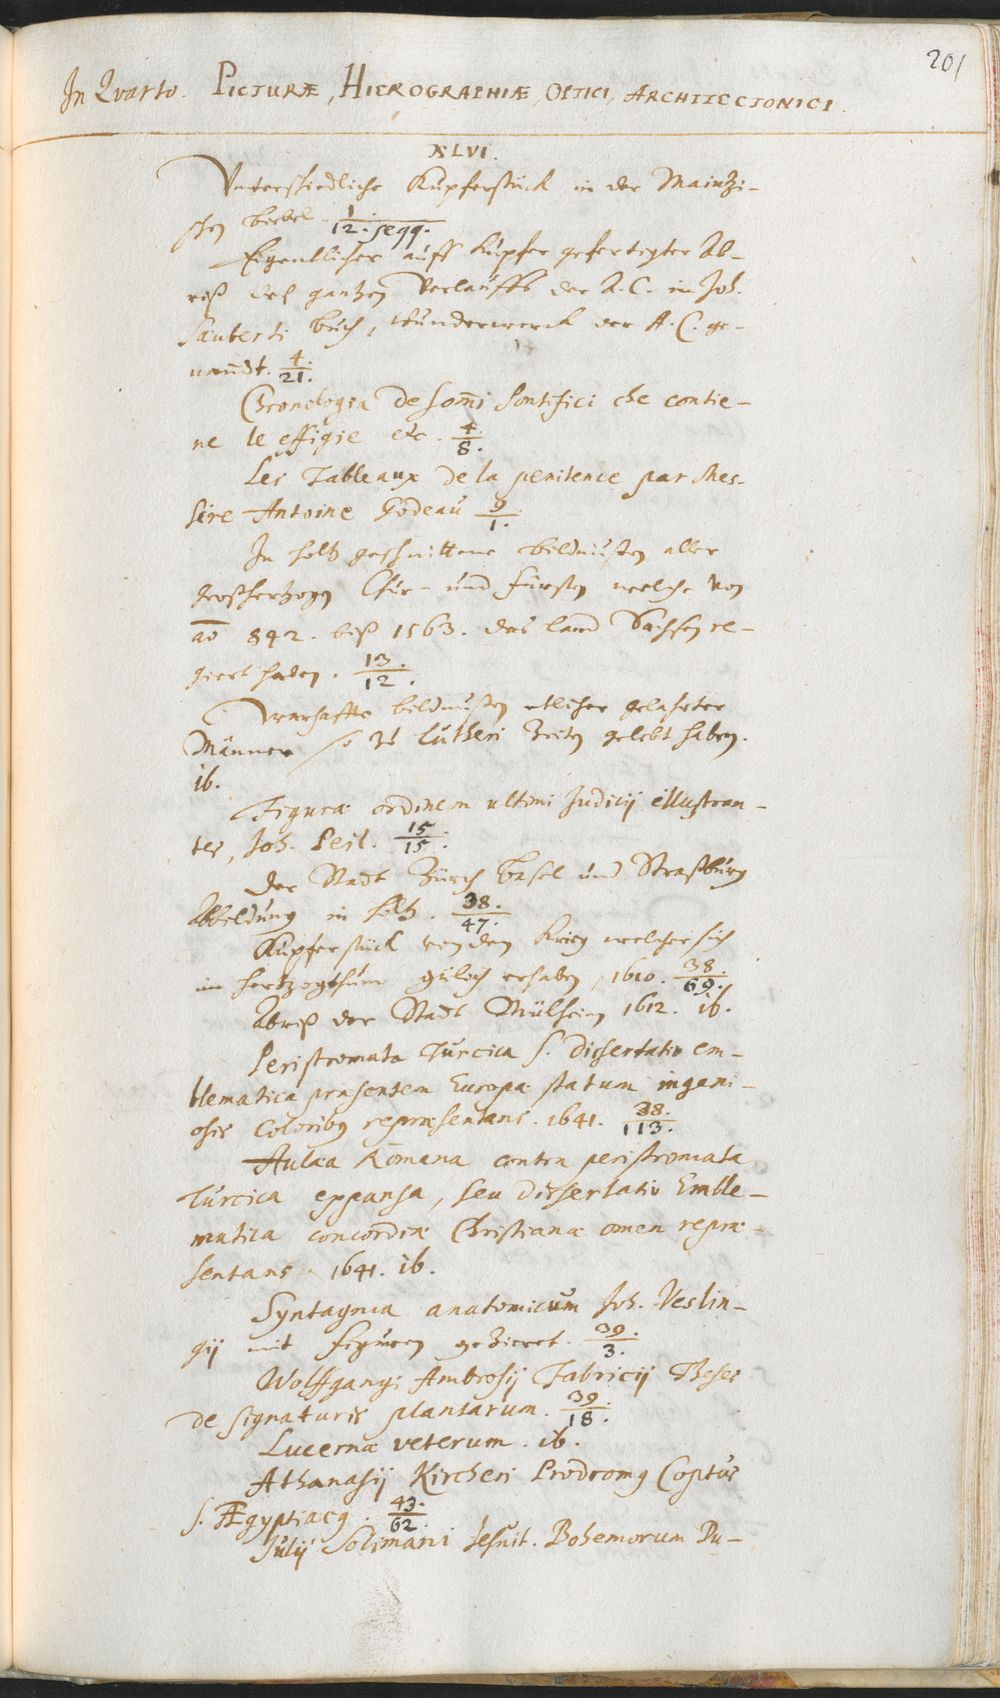 201
In Quarto. PICTURÆ, HIEROGRAPHIÆ, OPTICI, ARCHITECTONICI.
XLVI.
Unterschiedliche Kupferstück in der Maintzi-
schen biebel. 1/12. seqq.
Eigentlicher auff Kupfer gefertigter Ab-
riß deß gantzen Verlauffs der A. C. in Joh.
Sauberti buch, wunderwerck der A. C. ge-
nañdt. 4./21.
Chronologia de som̃i Pontifici che contie-
ne le effigie etc. 4./8.
Les Tableaux de la penitence par Mes-
sire Antoine Godeau 9/1.
In holtz geschnittene bildnussen aller
Großhertzogen Chur- und Fürsten welche von
aō 842. biß 1563. das land Sachsen re-
giert haben. 13./12.
Warhaffte bildnussen etlicher gelehrter
Männer so zu Lutheri Zeiten gelebt haben.
ib.
Figuræ ordinem ultimi Judicij illustran-
tes, Joh. Peil. 15/15.
Der Stadt Zürch basel und Straßburg
Abbildung in holtz. 38./47.
Kupferstück von dem Krieg welcher sich
im Hertzogthum Gülch erhaben, 1610. 38./69.
Abriß der Stadt Mülheim 1612. ib.
Peristromata Turcica s. dissertatio em-
blematica præsentem Europæ statum ingeni-
osis coloribus repræsentans. 1641. 38./113.
Aulæa Romana contra peristromata
Turcica expansa, seu dissertatio Emble-
matica concordiæ Christianæ omen repræ-
sentans. 1641. ib.
Syntagma anatomicum Joh. Veslin-
gij mit figuren gezieret. 39./3.
Wolffgangi Ambrosij Fabricij Theses
de signaturis plantarum. 39/18.
Lucernæ veterum. ib.
Athanasij Kircheri Prodromus Coptus
s. Ægyptiacus. 43./62.
Julij Solimani Jesuit. Bohemorum Du-